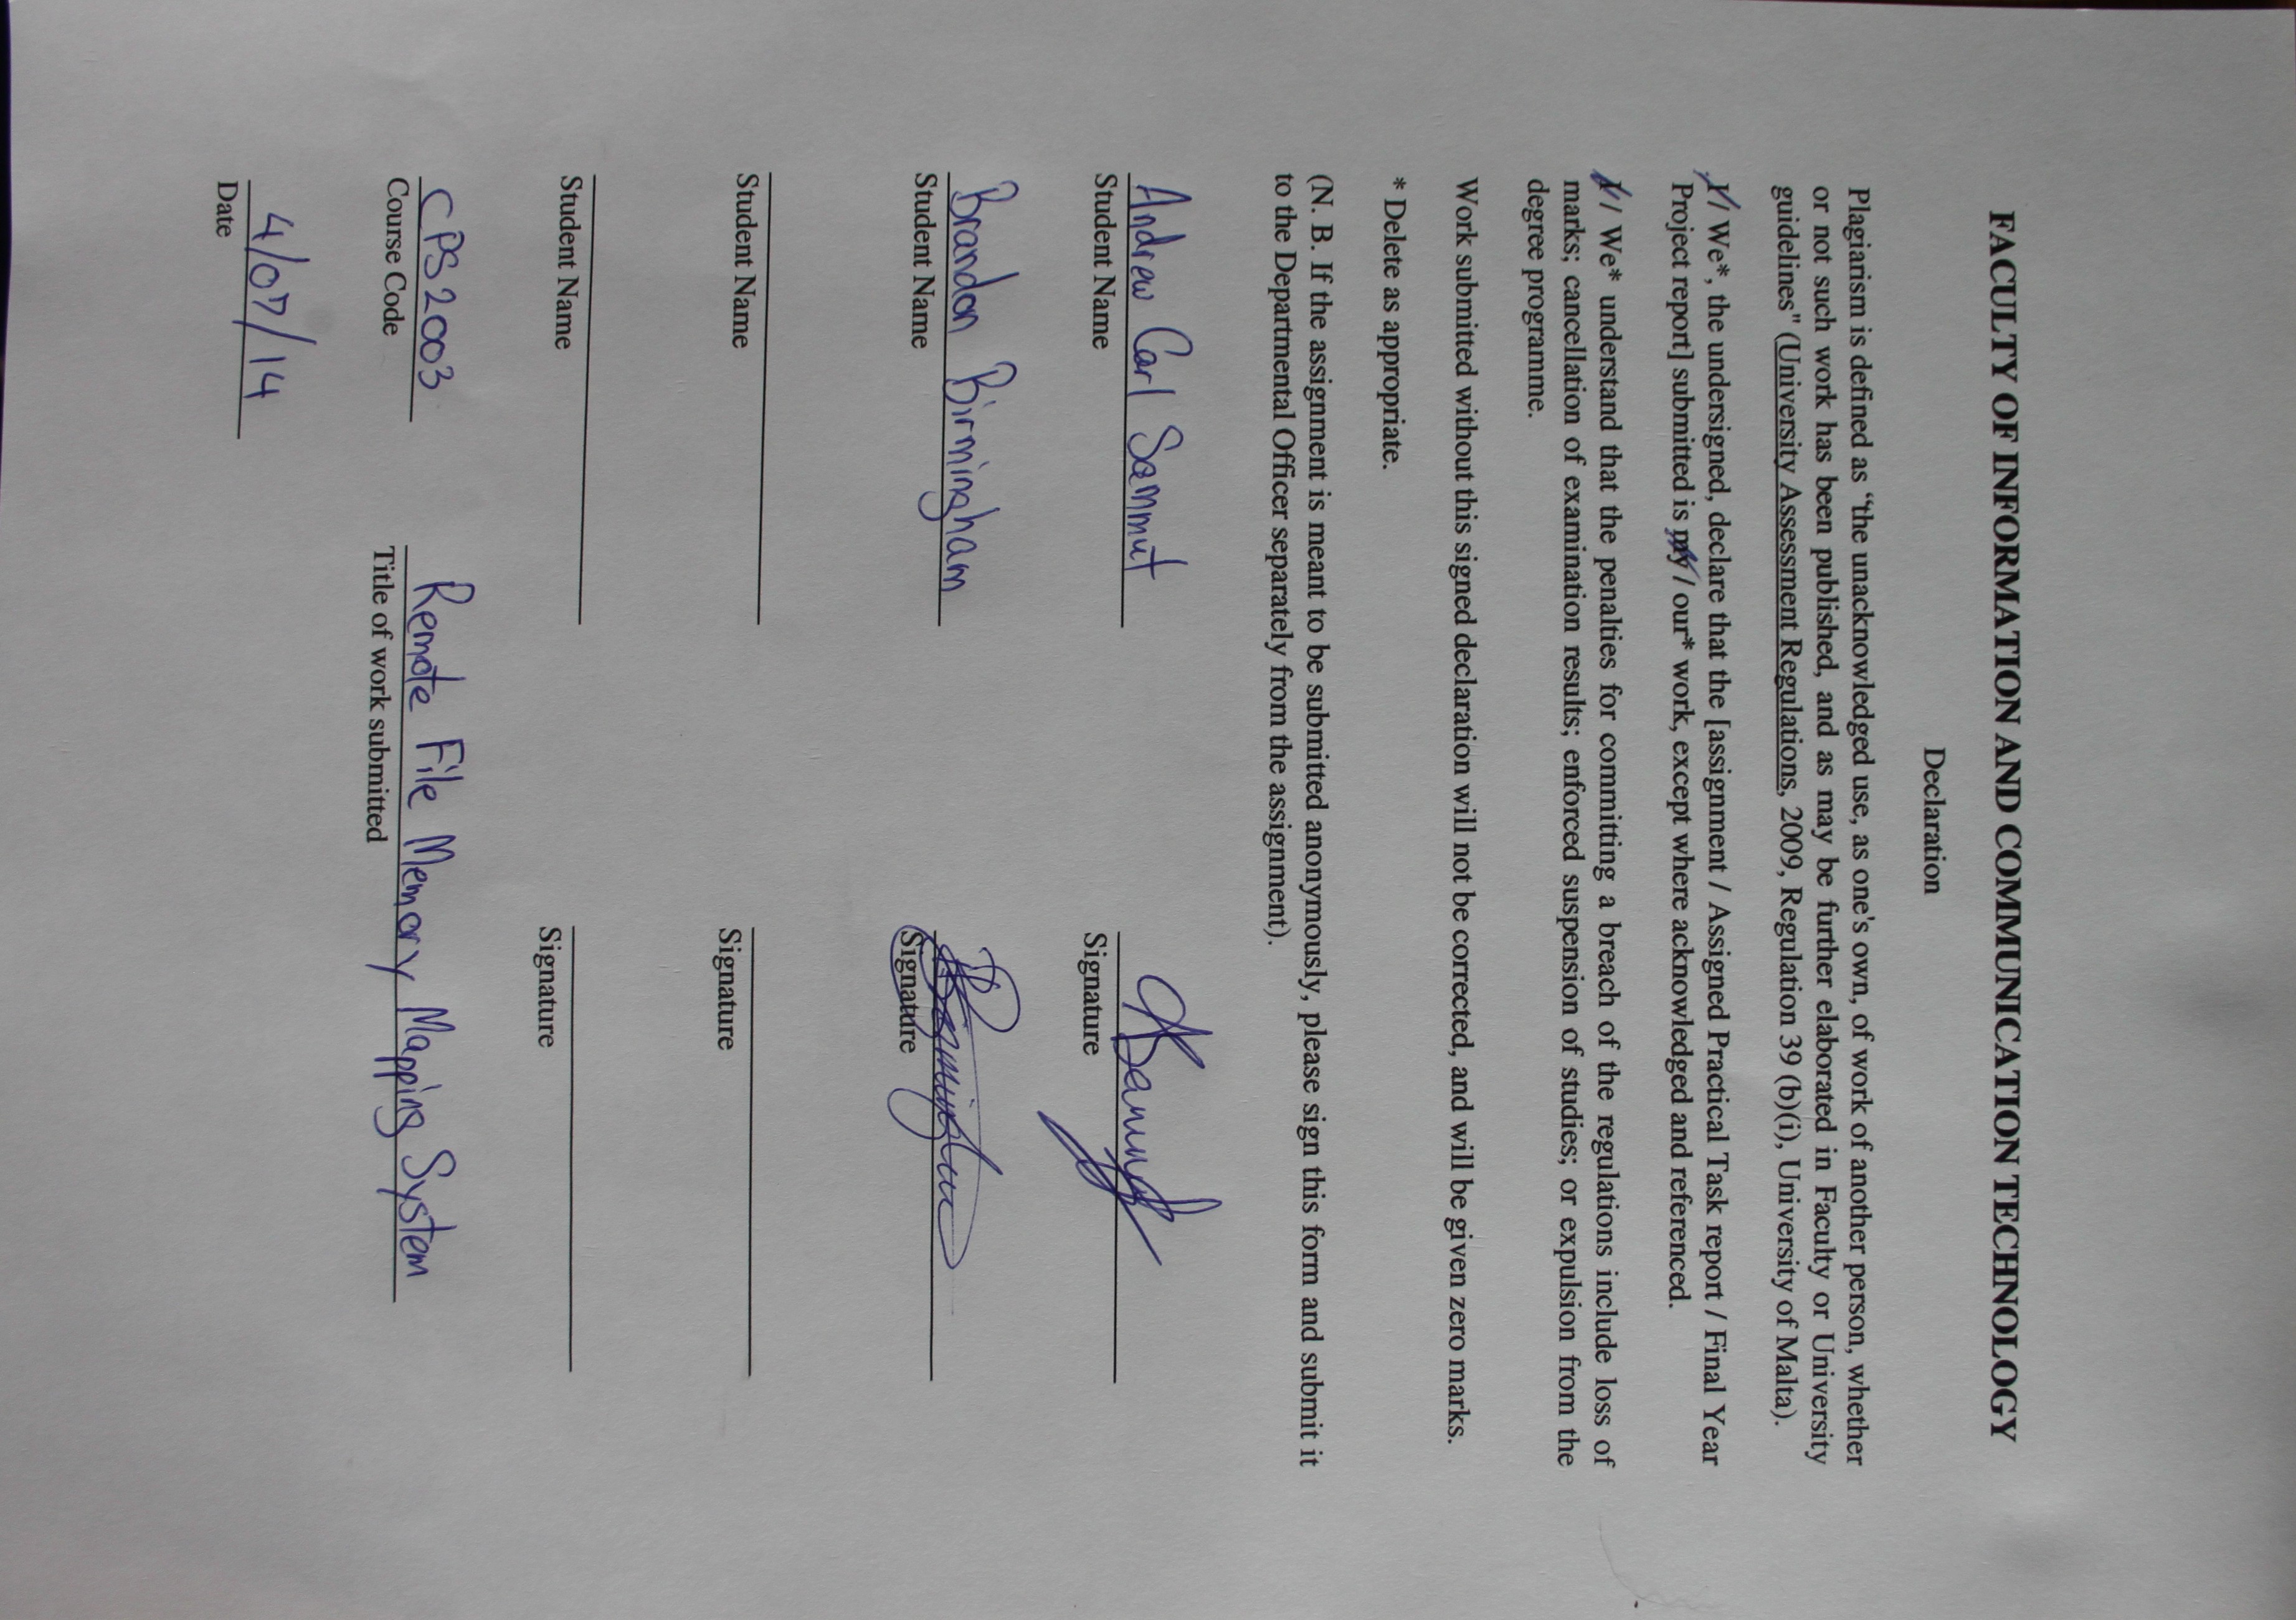 FACULTY OF INFORMATION AND COMMUNICATION TECHNOLOGY
Declaration
Plagiarism is defined as “the unacknowledged use, as one's own, of work of another person, whether
or not such work has been published, and as may be further elaborated in Faculty or University
guidelines" (University Assessment Regulations, 2009, Regulation 39 (b)(i), University of Malta).
I / We*, the undersigned, declare that the [assignment / Assigned Practical Task report / Final Year
Project report] submitted is my / our* work, except where acknowledged and referenced.
I / We* understand that the penalties for committing a breach of the regulations include loss of
marks; cancellation of examination results; enforced suspension of studies; or expulsion from the
degree programme.
Work submitted without this signed declaration will not be corrected, and will be given zero marks.
* Delete as appropriate.
(N. B. If the assignment is meant to be submitted anonymously, please sign this form and submit it
to the Departmental Officer separately from the assignment).
Andrew Carl Sammut
Student Name
Signature
Brandon Birmingham
Student Name
Signature
Student Name
Signature
Student Name
Signature
CPS2003
Remote File Memory Mapping System
Course Code
Title of work submitted
4/07/14
Date